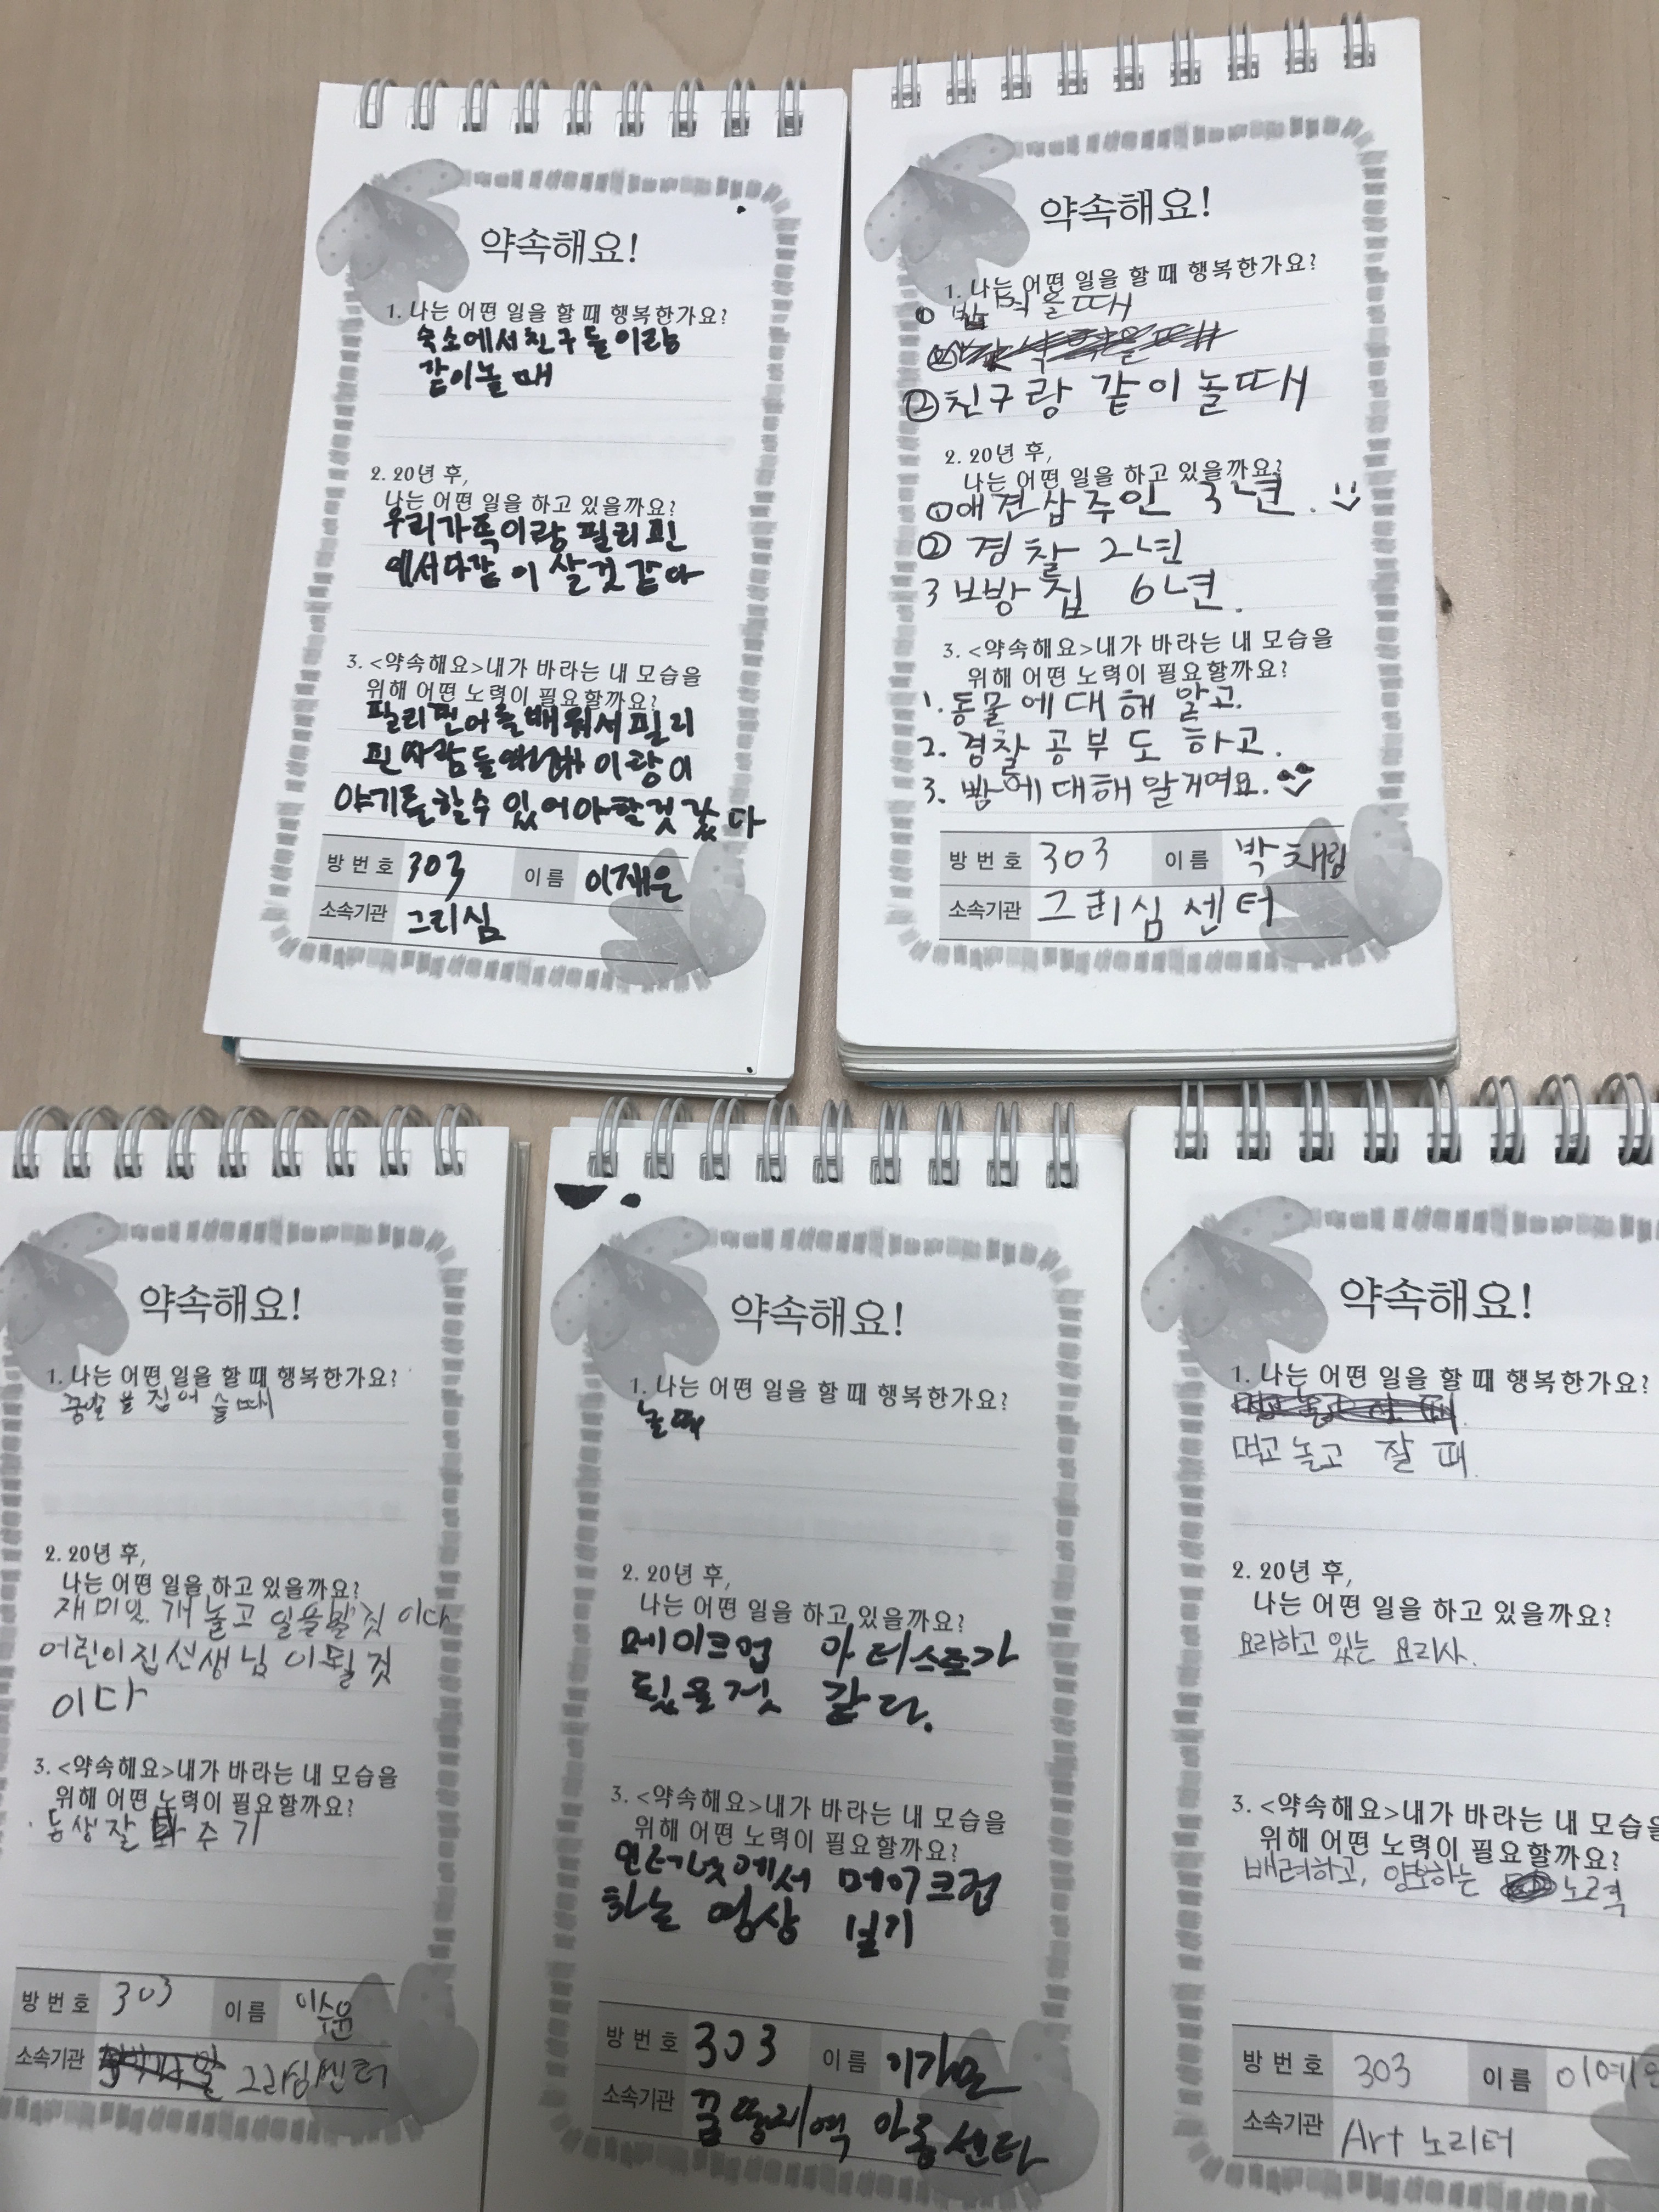 약속해요!
1. 나는 어떤 일을 할 때 행복한가요?
숙소에서친구들이랑
같이놀때
2. 20년 후,
나는 어떤 일을 하고 있을까요?
우리가족이랑 필리핀
에서다같이 살것같아
3. <약속해요>내가 바라는 내 모습을
위해 어떤 노력이 필요할까요?
필리핀어를배워서필리
핀사람들 이랑이
야기를할수있어야할것같다
방 번 호 303 이 름 이재은
소속기관 그리심
약속해요!
1. 나는 어떤 일을 할 때 행복한가요?
① 밥 먹을때
②친구랑 같이놀때
2. 20년 후,
나는 어떤 일을 하고 있을까요?
①애견삽주인 3년.
② 경찰 2년
3 빠방집 6년.
3. <약속해요>내가 바라는 내 모습을
위해 어떤 노력이 필요할까요?
1. 동물에대해 알고.
2. 경찰공부도 하고.
3. 빵에대해알거예요.
방 번 호 303 이 름 박채림
소속기관 그리심센터
약속해요!
1. 나는 어떤 일을 할 때 행복한가요?
2. 20년 후,
나는 어떤 일을 하고 있을까요?
재미있게놀고 이다
어린이집선생님이될것
이다
3. <약속해요>내가 바라는 내 모습을
위해 어떤 노력이 필요할까요?
동생잘 주기
방 번 호 303 이 름 이수윤
소속기관 그리심센터
약속해요!
1. 나는 어떤 일을 할 때 행복한가요?
놀때
2. 20년 후,
나는 어떤 일을 하고 있을까요?
메이크업 아티스트가
갈다.
3. <약속해요>내가 바라는 내 모습을
위해 어떤 노력이 필요할까요?
인터넷에서 메이크업
하는 영상 보기
방 번 호 303 이 름
소속기관 아동센터
약속해요!
1. 나는 어떤 일을 할 때 행복한가요?
먹고 놀고 잘 때.
2. 20년 후,
나는 어떤 일을 하고 있을까요?
요리하고 있는 요리사.
3. <약속해요>내가 바라는 내 모습을
위해 어떤 노력이 필요할까요?
배려하고, 양보하는 노력
방 번 호 303 이 름 이예
소속기관 Art 노리터